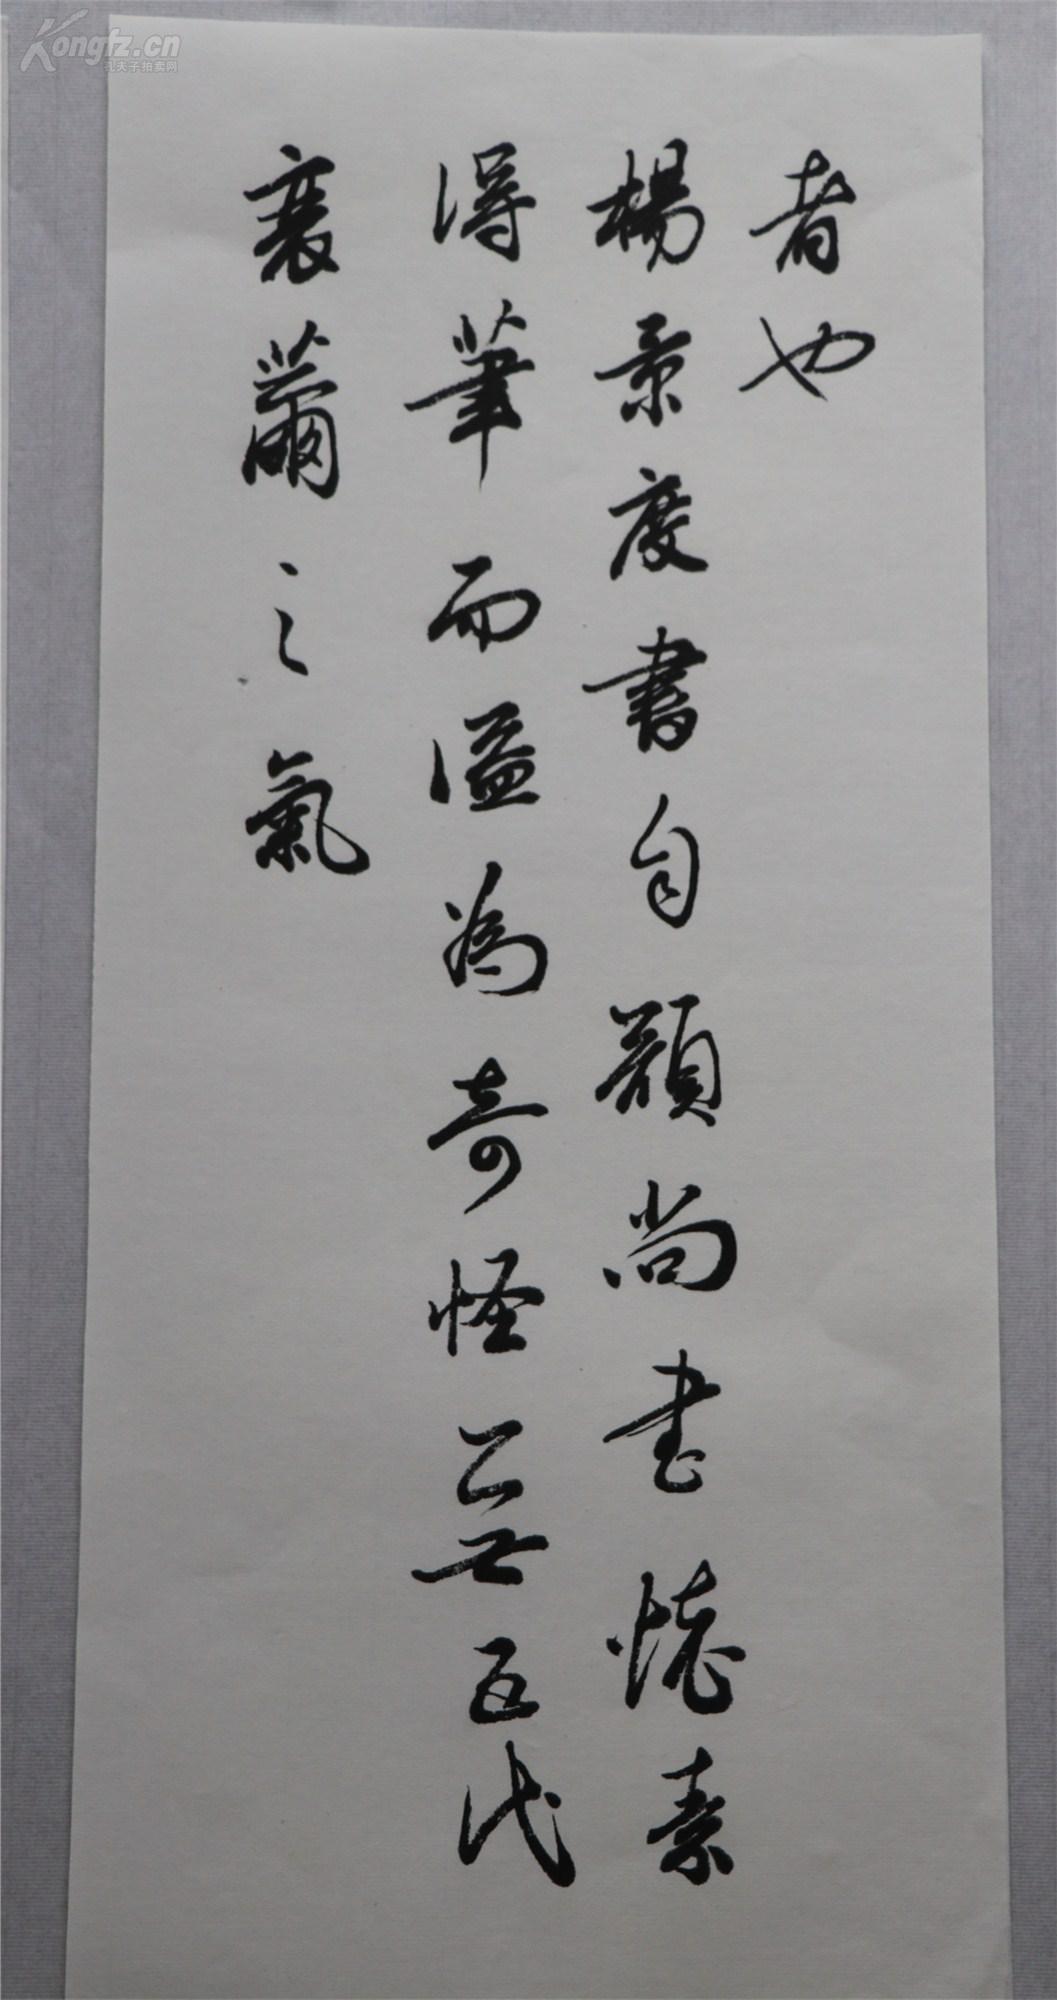 者也
楊景度書自顏尚書懷素
得筆而溢為奇怪無五代
衰薾之氣
Kongfz.cn
孔夫子拍卖网